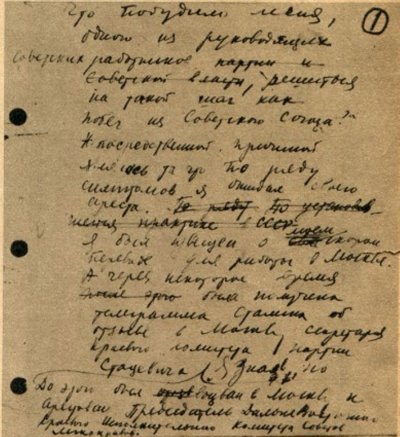 1
Что побудило меня,
одного из руководящих
советских работников партии и
Советской власти, решиться
на такой шаг как
побег из Советского Союза?
Непосредственной причиной
явилось то что по ряду
симптомов я ожидал своего
ареста. По ряду По установив
шейся практике в СССР
Я был извещен о моем скором
вызове для работы в Москве.
А через некоторое время
после этого была получена
телеграмма Сталина об
отзыве в Москву секретаря
краевого комитета партии
Стацевича (Я знал, что
До этого был вызван в Москву и
арестован Председатель Дальневосточного
Краевого Исполнительного Комитета Советов